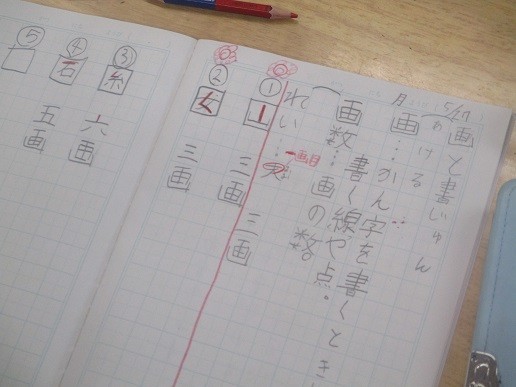 5/27
画と書じゅん
月
画…かん字を書くとき
書く線や点。
画数…画の数
れい…
一画目
① 山 三画
三画
② 女 三画
③ 糸 六画
④ 石 五画
⑤